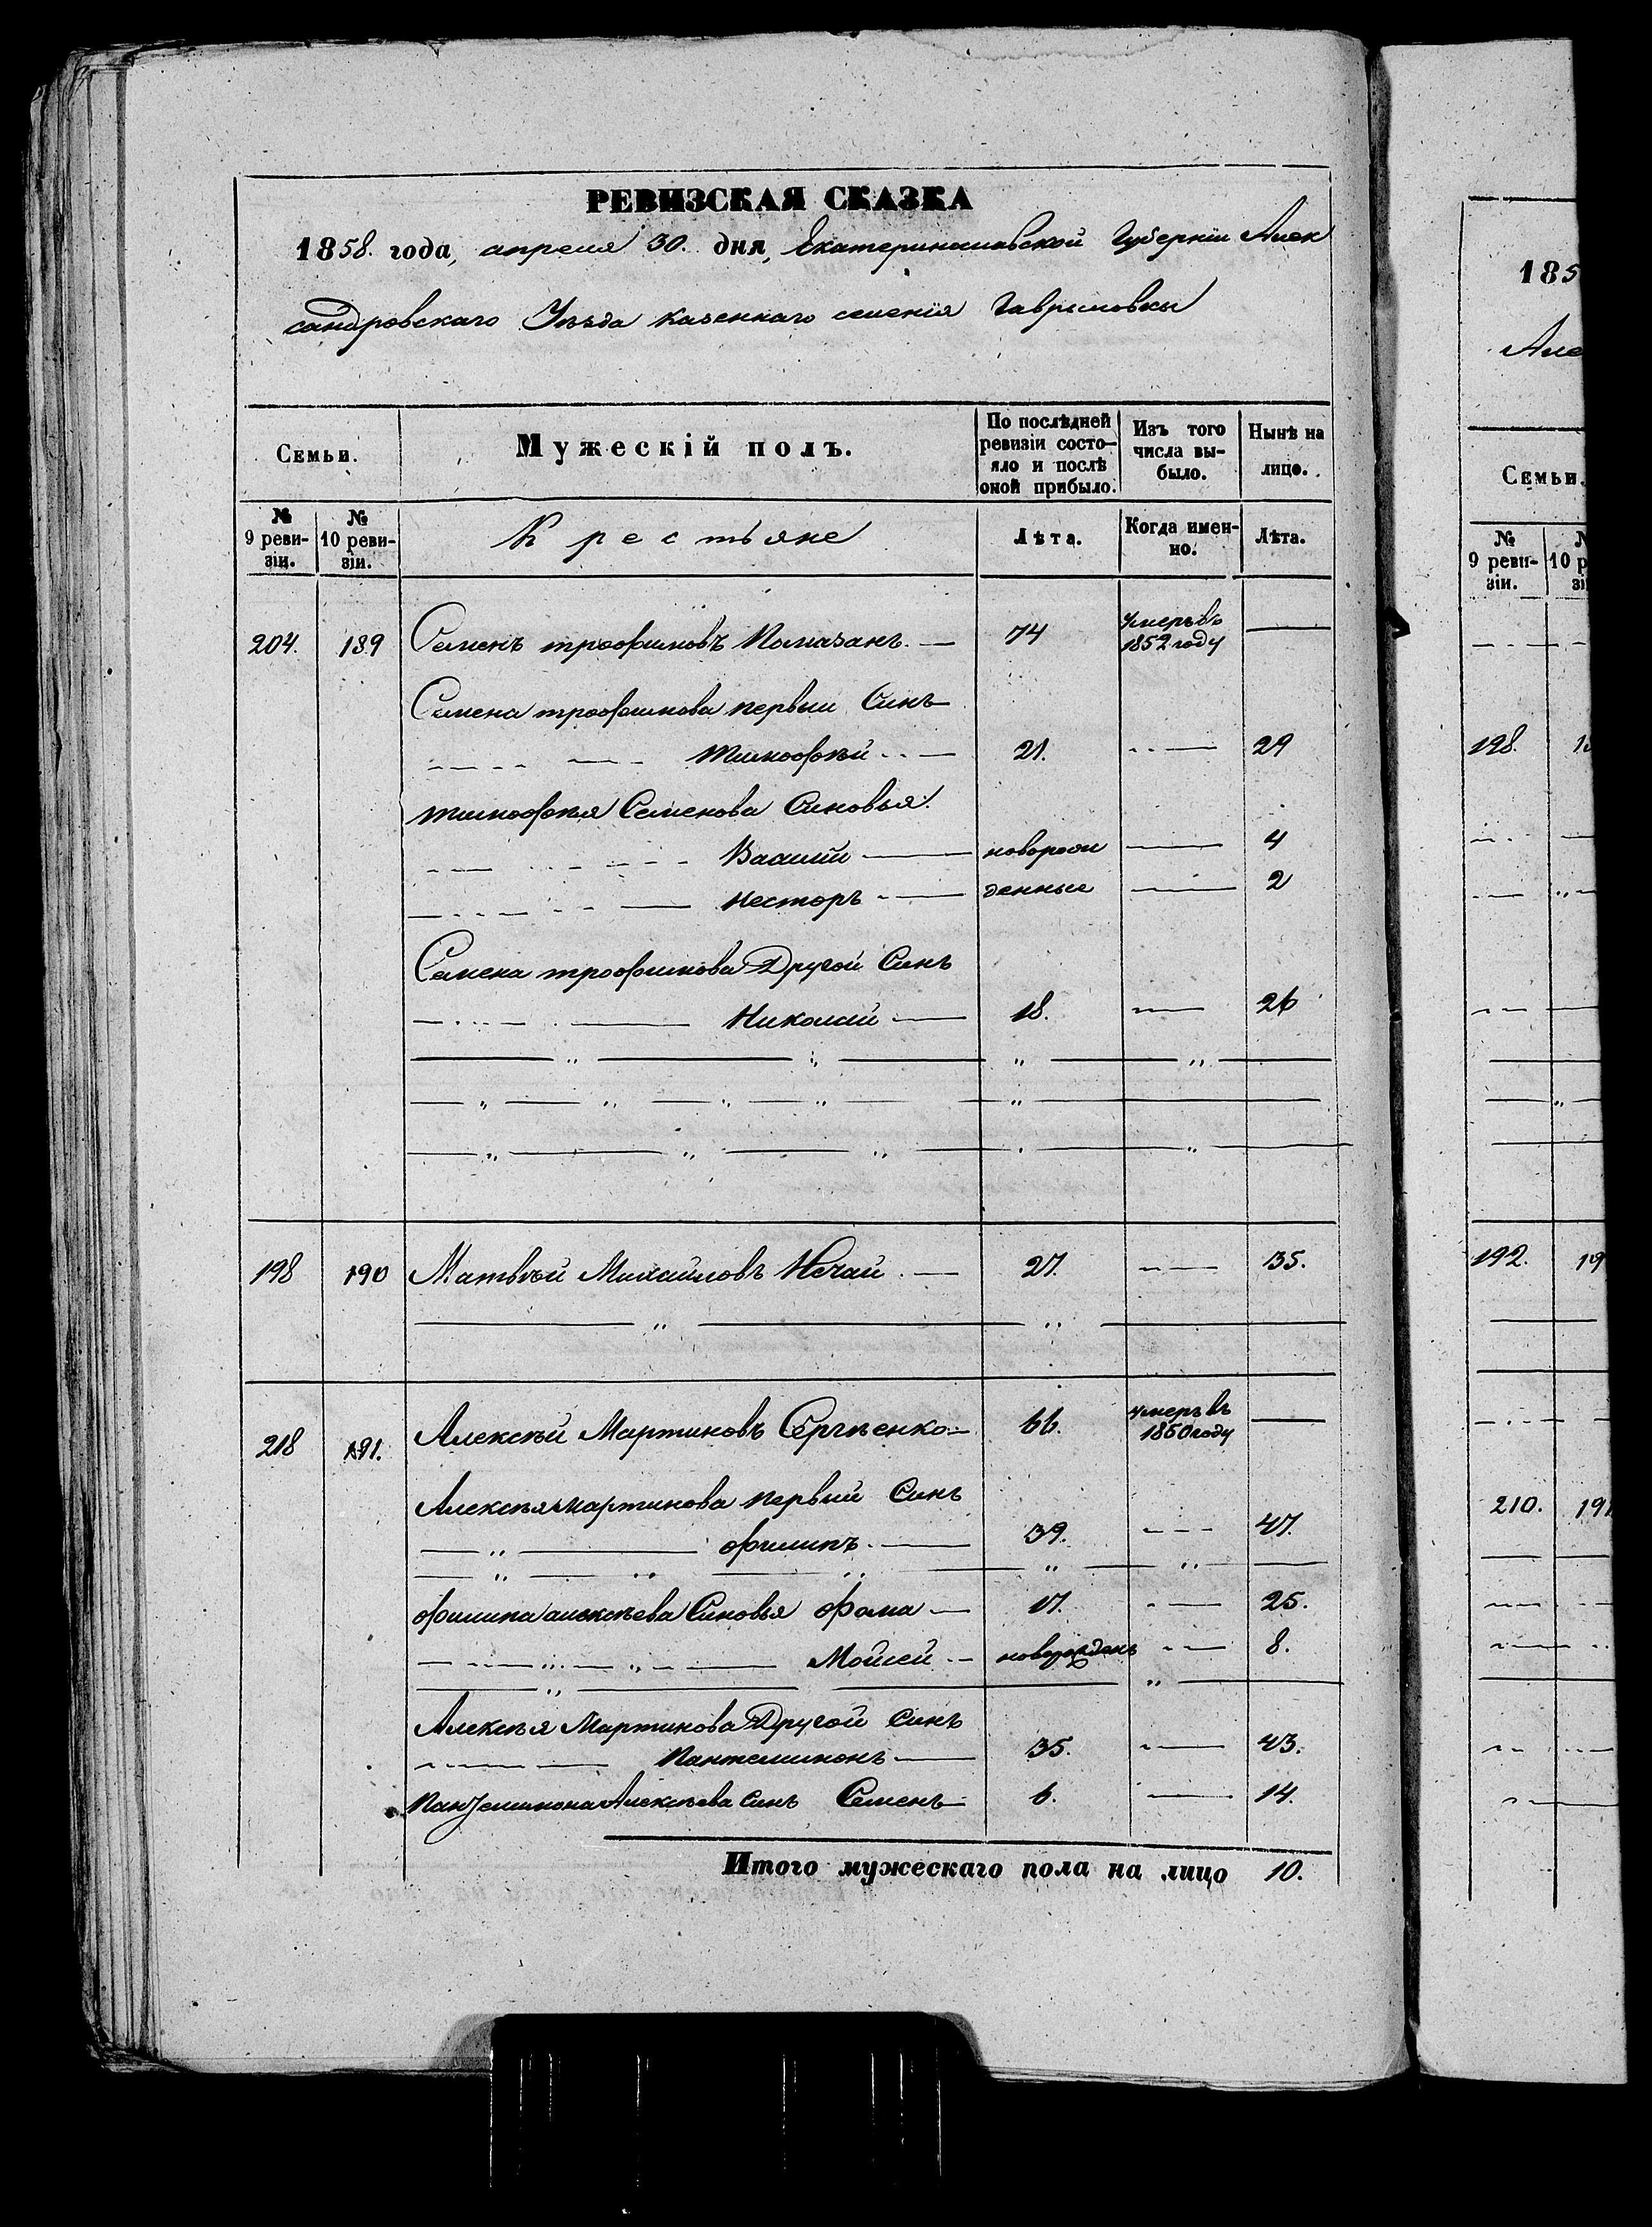 РЕВИЗСКАЯ СКАЗКА
1858. года, апреля 30. дня, Екатеринославской Губерніи Алек
сандровскаго Уѣзда казеннаго селенія Гаврыловки
Семьи.
Мужескій полъ.
По послѣдней
ревизіи состо-
яло и послѣ
оной прибыло.
Изъ того
числа вы-
было.
Нынѣ на
лицо.
№
9 реви-
зіи.
№
10 реви-
зіи.
Крестьяне
Лѣта.
Когда имен-
но.
Лѣта.
204. 189 Семенъ трофимовъ Помазанъ. — 74 умеръ въ 1852 году —
Семена трофимова первый Синъ
Тимофѣй 21. — 29
тимофѣя Семенова Синовья.
Василій — новорож — 4
Несторъ — денные — 2
Семена трофимова Другой Синъ
Николай — 18. — 26
198 190 Матвѣй Михайловъ Нечай — 27. — 35.
218 191. Алексѣй Мартиновъ Сергѣенко — 66. умеръ въ 1850 году —
Алексѣя мартинова первый Синъ
филипъ — 39. — 47.
филипа алексѣева Синовья фома — 17. — 25.
Мойсей — новорожденъ — 8.
Алексѣя Мартинова Другой Синъ
Пантелимонъ — 35. — 43.
Пантелимона Алексѣева Синъ Семенъ — 6. — 14.
Итого мужескаго пола на лицо 10.
185
Але
Семьи.
№
9 реви-
зіи.
10 р
зі
198.
192. 19
210. 191